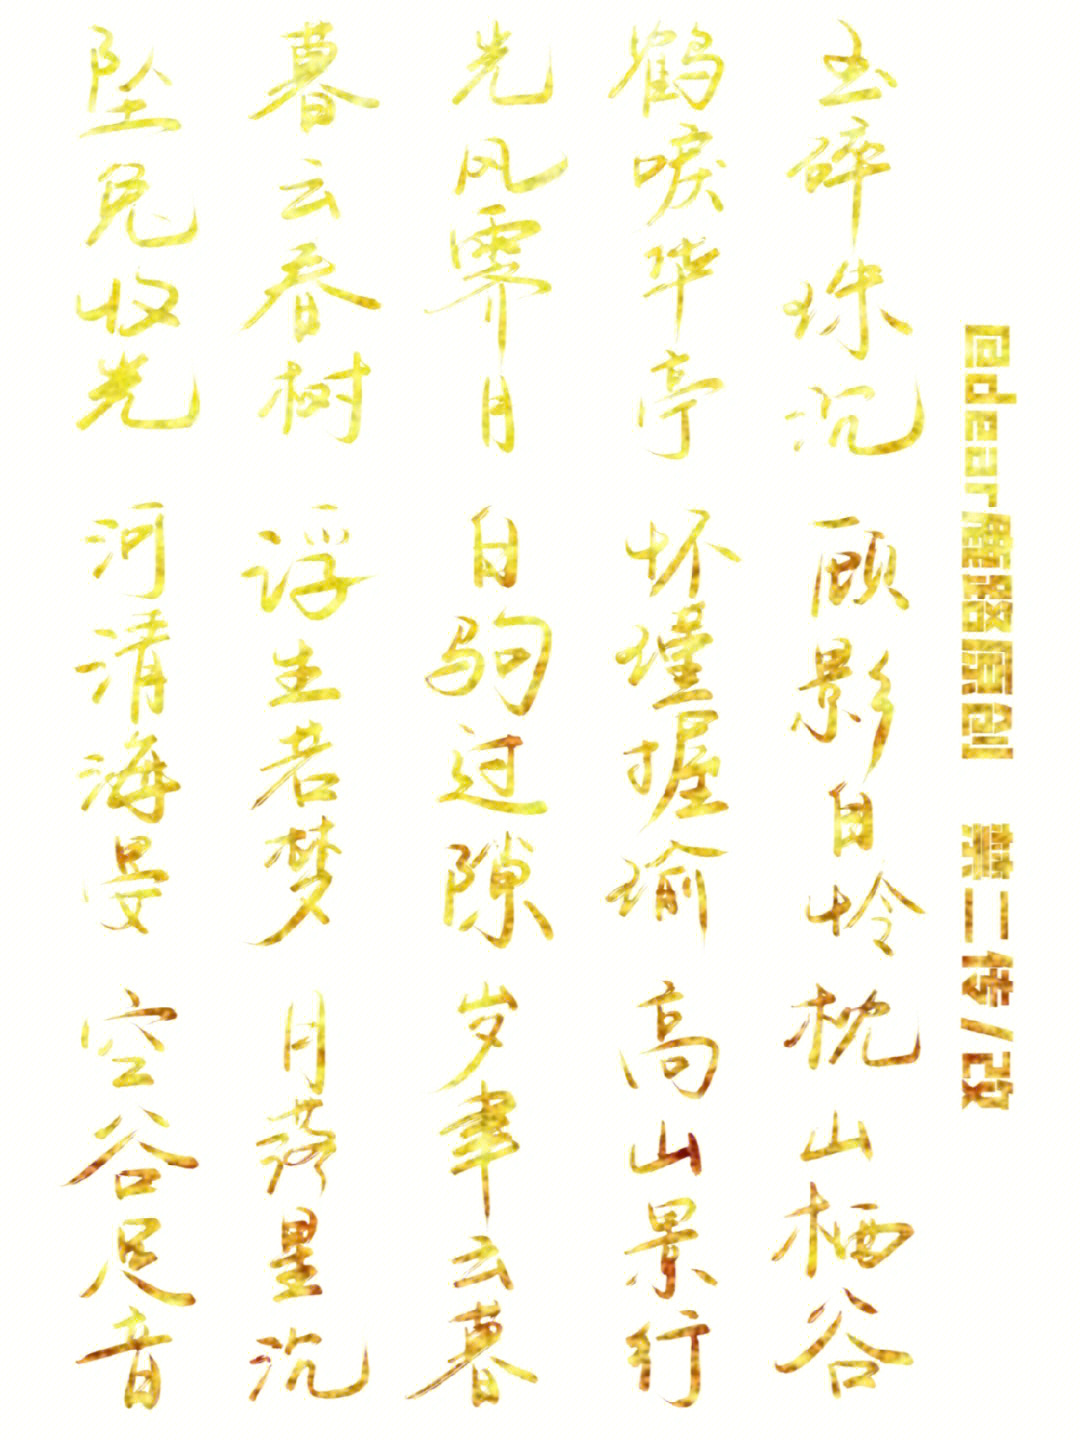 @dear鹿原创 禁二传/改
玉碎珠沉 顾影自怜 枕山栖谷
鹤唳华亭 怀瑾握瑜 高山景行
光风霁月 白驹过隙 岁聿云暮
暮云春树 浮生若梦 月落星沉
坠兔收光 河清海晏 空谷足音